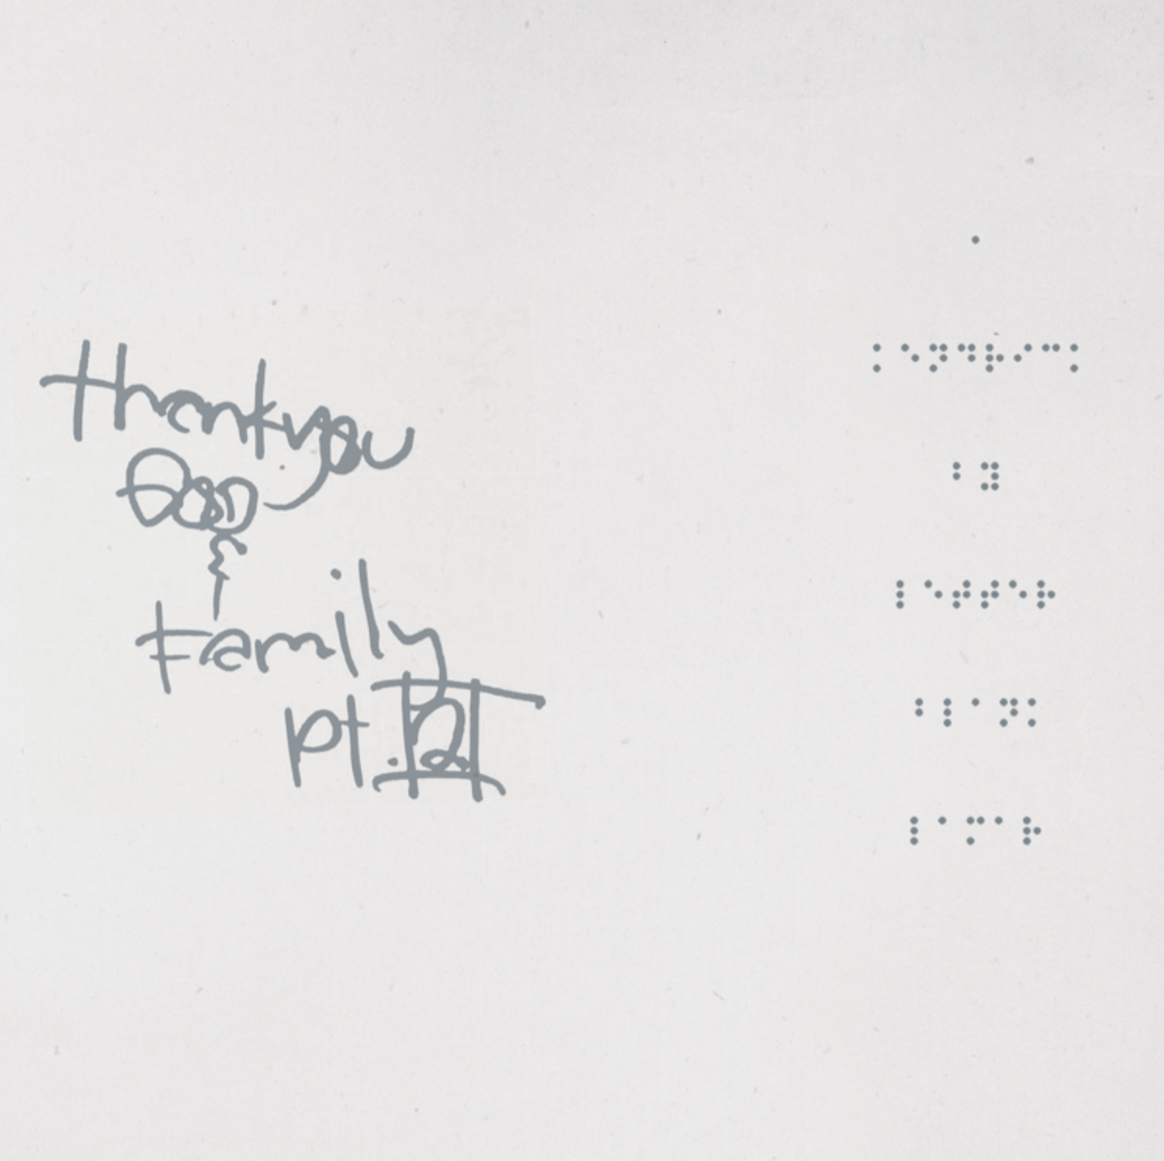 Thank you
GOD
&
Family
pt. 2
⠁
⠅⠑⠝⠙⠗⠊⠉⠅
⠃⠽
⠇⠑⠞⠞⠑⠗
⠃⠇⠁⠝⠅
⠇⠁⠍⠁⠗